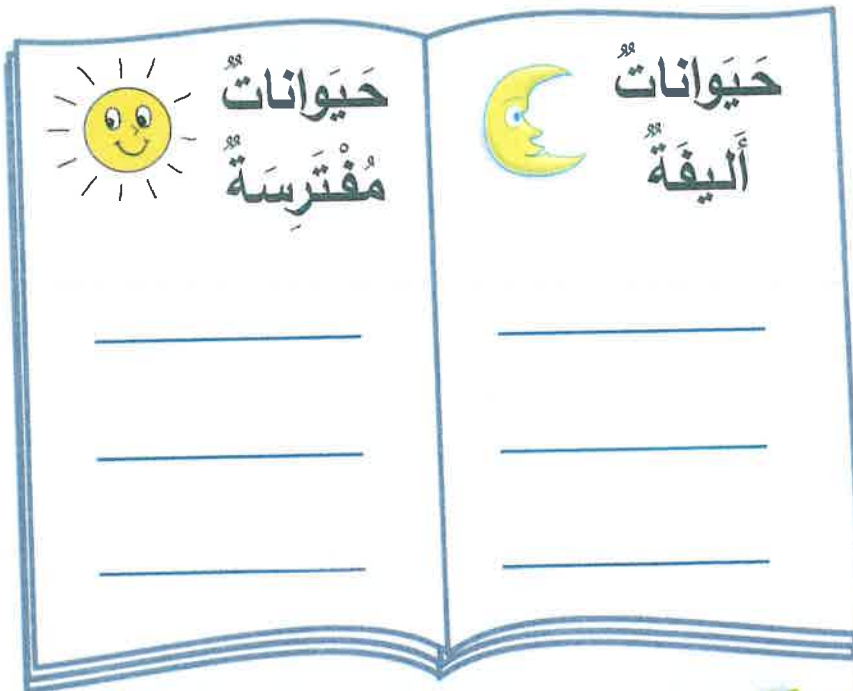 حَيَواناتٌ
أَليفَةٌ
حَيَواناتٌ
مُفْتَرِسَةٌ